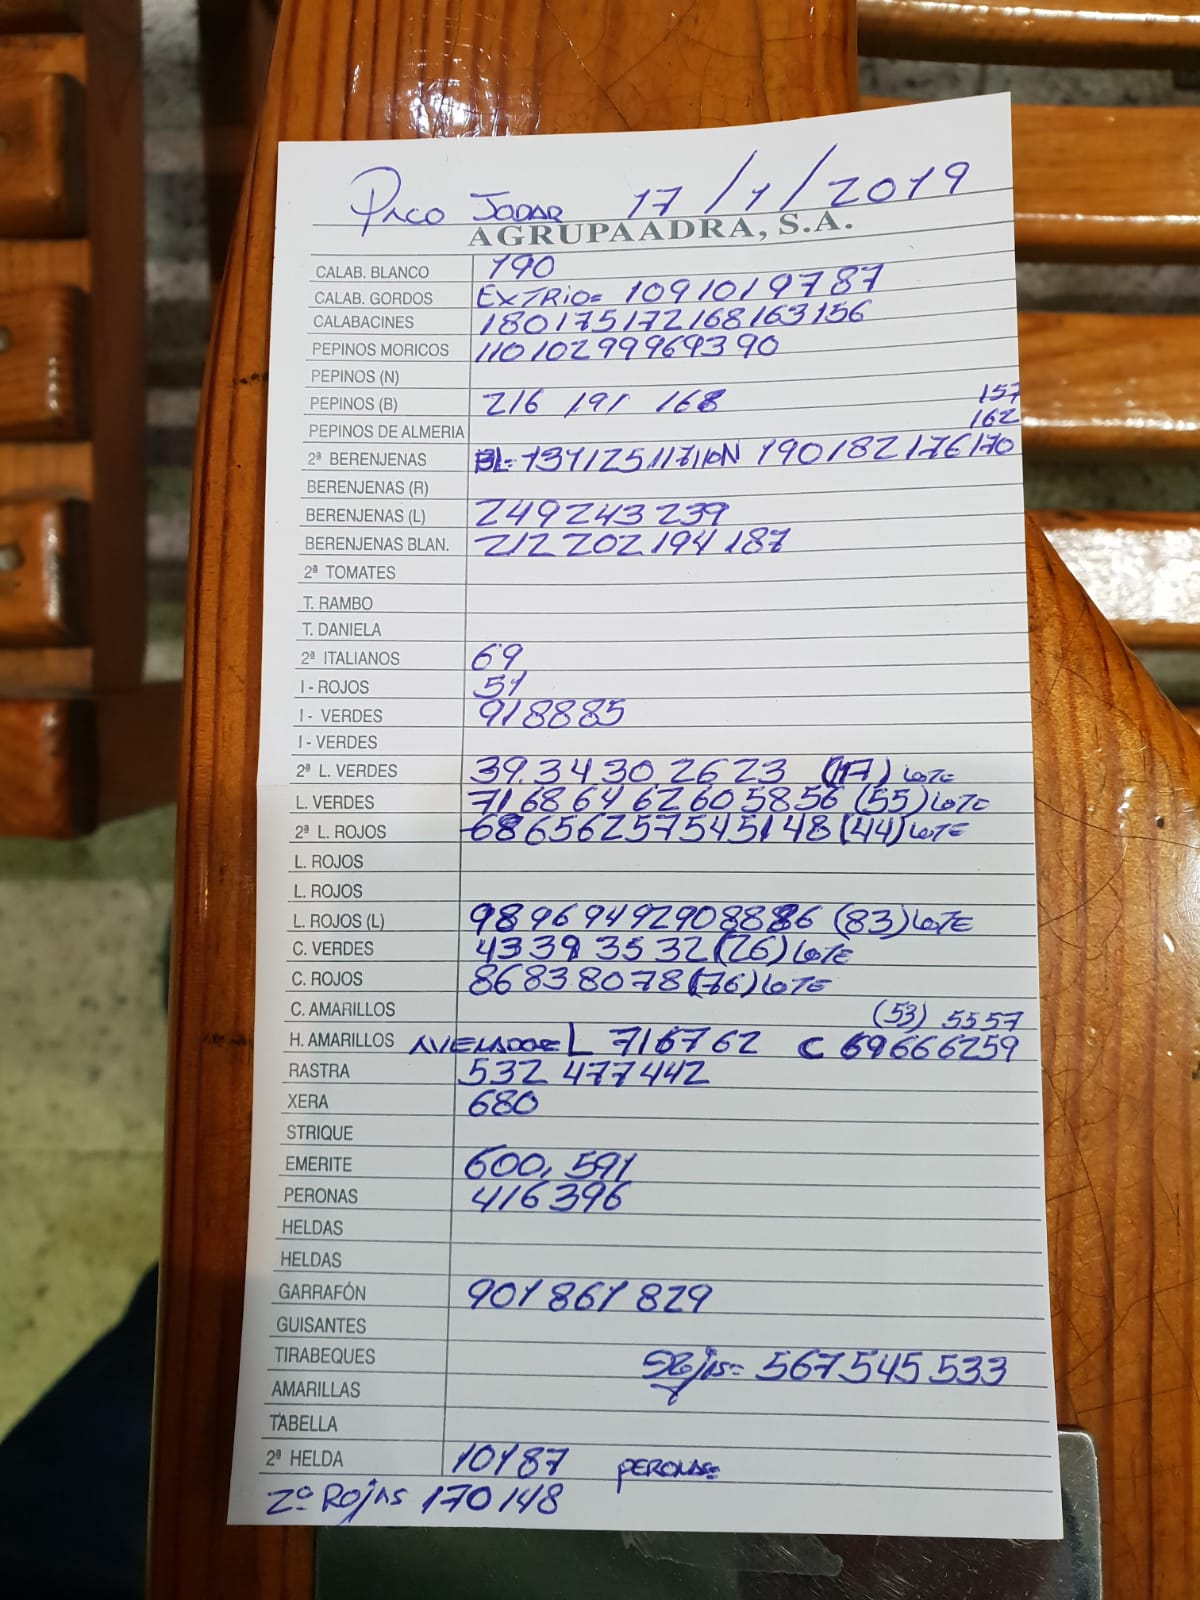 Paco Jodar 17/1/2019
AGRUPAADRA, S.A.
CALAB. BLANCO 190
CALAB. GORDOS EXTRIO= 109 101 97 87
CALABACINES 180 175 172 168 163 156
PEPINOS MORICOS 110 102 99 96 93 90
PEPINOS (N)
PEPINOS (B) 216 191 168 157
PEPINOS DE ALMERIA 162
2ª BERENJENAS BL= 134 125 117 110 N 190 182 176 170
BERENJENAS (R)
BERENJENAS (L) 249 243 239
BERENJENAS BLAN. 212 202 194 187
2ª TOMATES
T. RAMBO
T. DANIELA
2ª ITALIANOS 69
I - ROJOS 51
I - VERDES 91 88 85
I - VERDES
2ª L. VERDES 39 34 30 26 23 (17) LOTE
L. VERDES 71 68 64 62 60 58 56 (55) LOTE
2ª L. ROJOS 68 65 62 57 54 51 48 (44) LOTE
L. ROJOS
L. ROJOS
L. ROJOS (L) 98 96 94 92 90 88 86 (83) LOTE
C. VERDES 43 39 35 32 (26) LOTE
C. ROJOS 86 83 80 78 (76) LOTE
C. AMARILLOS (53) 55 57
H. AMARILLOS L 71 67 62 C 69 66 62 59
RASTRA 532 477 442
XERA 680
STRIQUE
EMERITE 600, 591
PERONAS 416 396
HELDAS
HELDAS
GARRAFÓN 901 861 829
GUISANTES
TIRABEQUES Rojas= 567 545 533
AMARILLAS
TABELLA
2ª HELDA 101 87 PERONAS=
2º Rojas 170 148